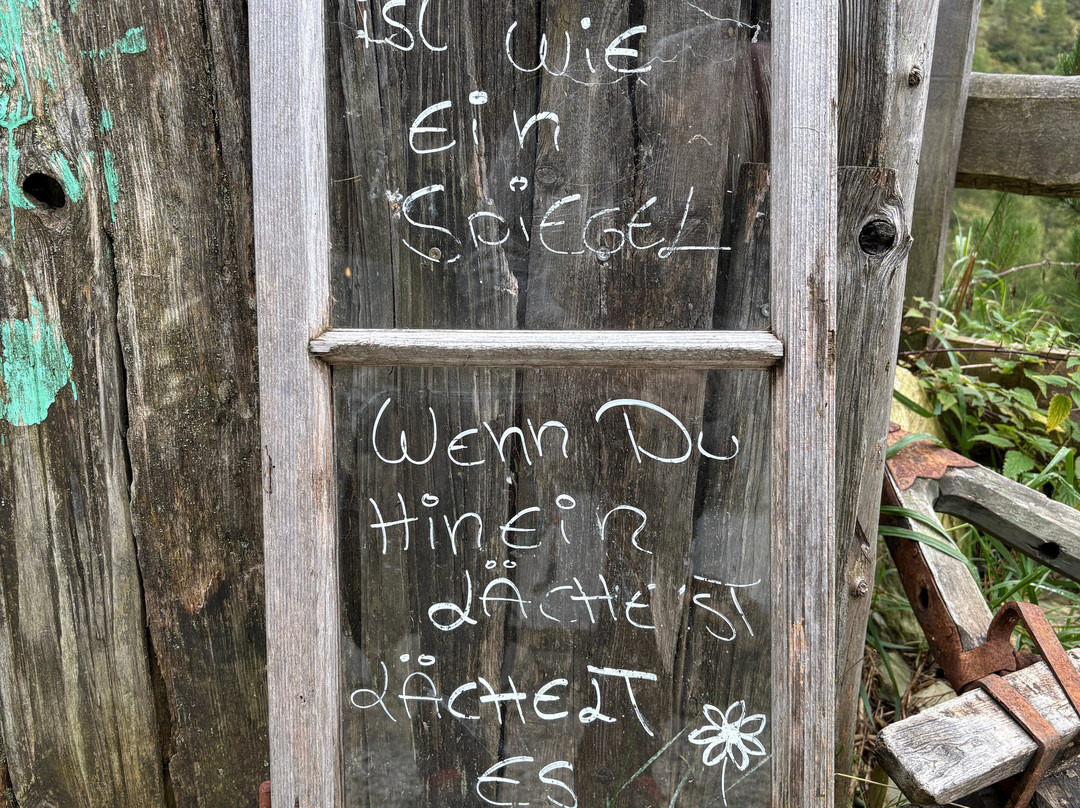 ist wie
Ein
SpiEGEL
Wenn Du
HinEin
LÄCHE ST
LÄCHELT
ES